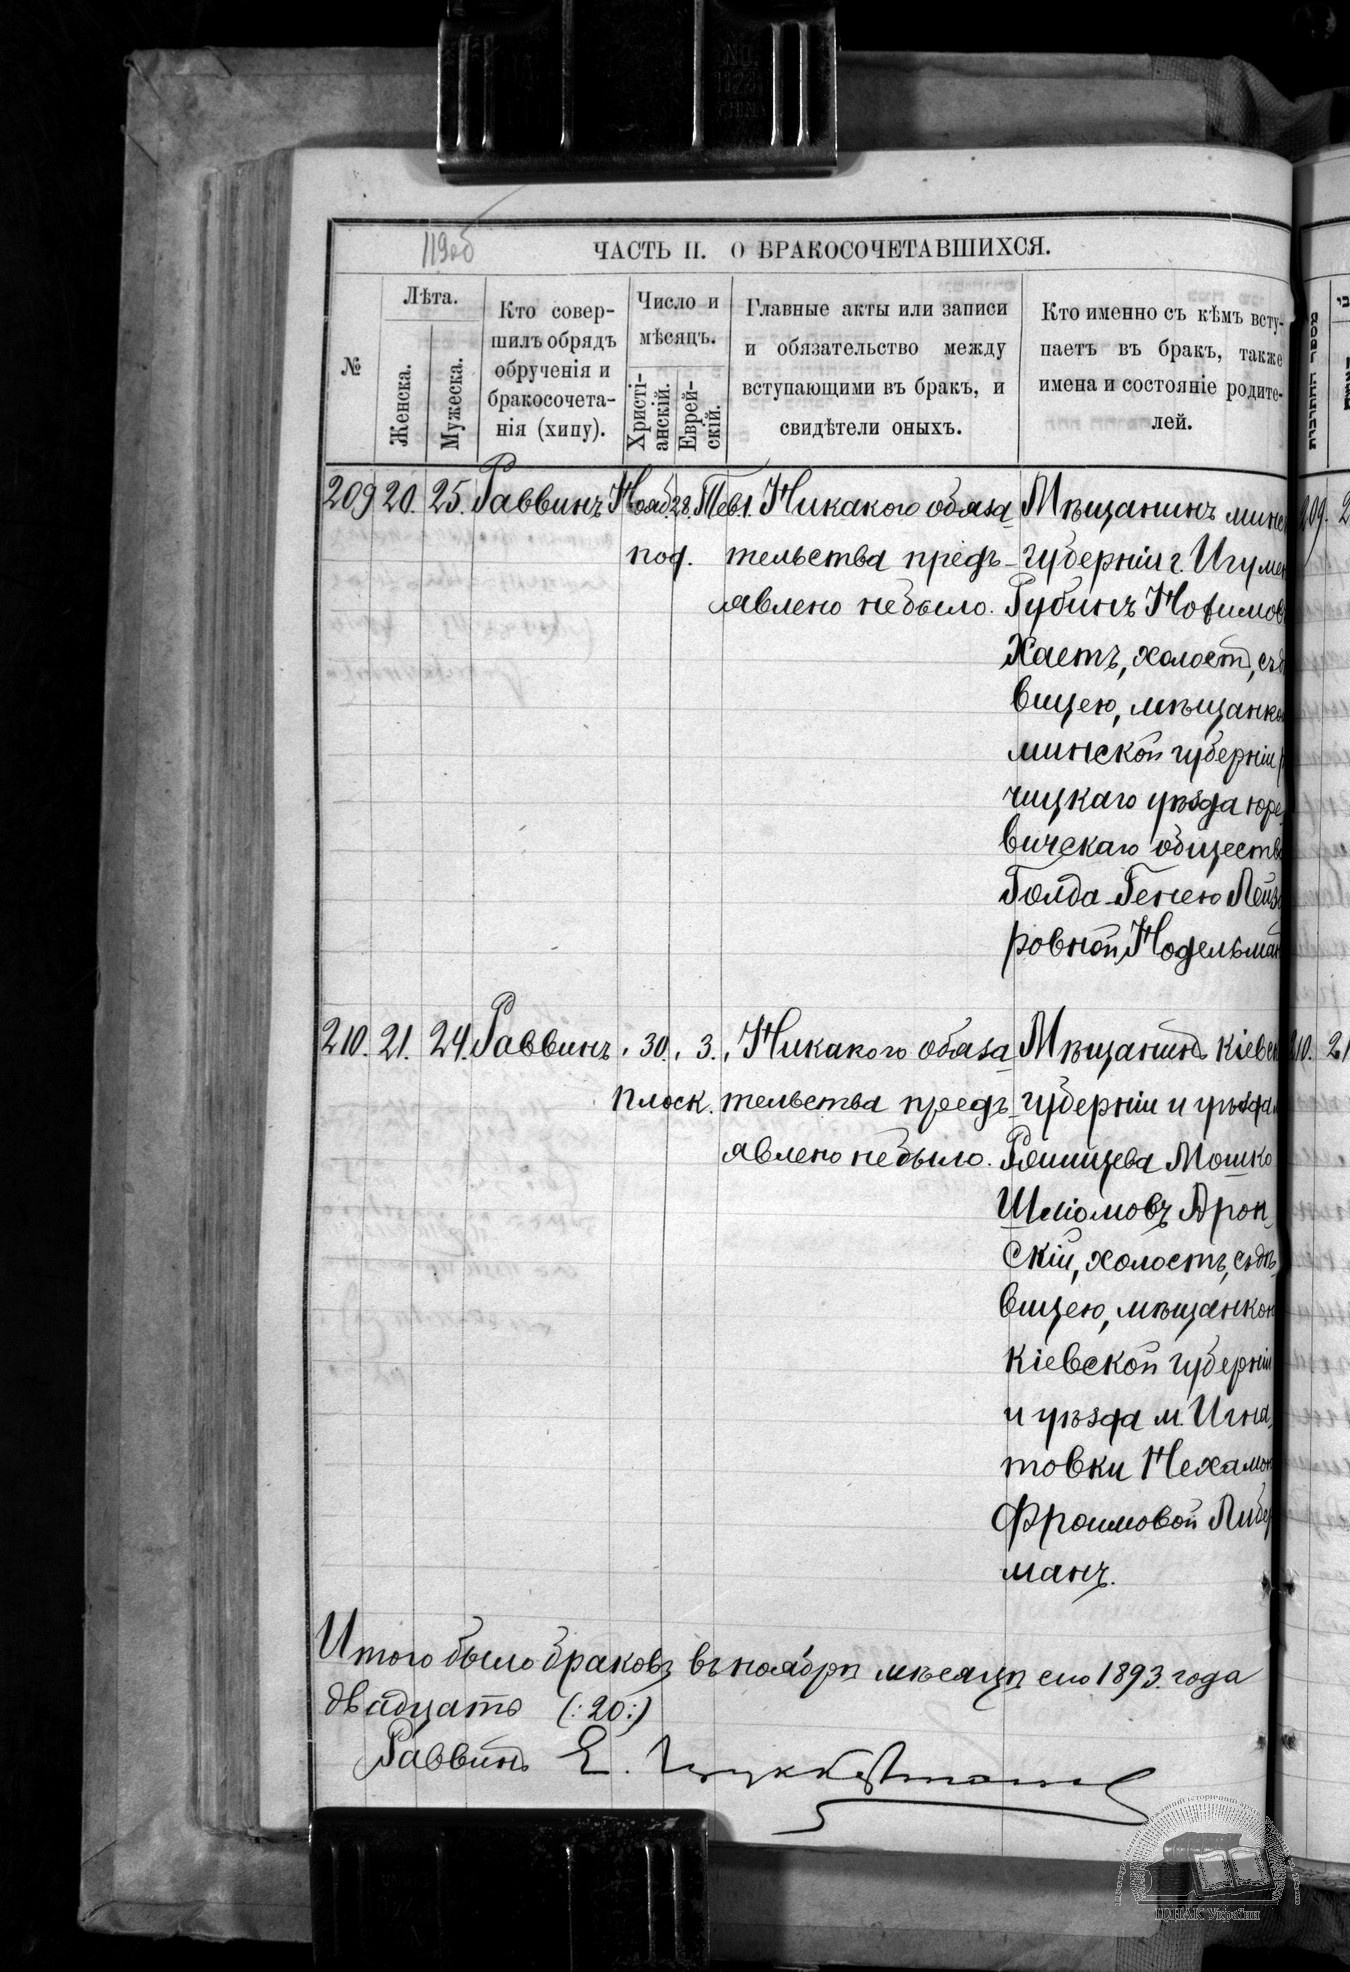 119об
ЧАСТЬ II. О БРАКОСОЧЕТАВШИХСЯ.
№
Лѣта.
Женска.
Мужеска.
Кто совер-
шилъ обрядъ
обрученія и
бракосочета-
нія (хипу).
Число и
мѣсяцъ.
Христі-
анскій.
Еврей-
скій.
Главные акты или записи
и обязательство между
вступающими въ бракъ, и
свидѣтели оныхъ.
Кто именно съ кѣмъ всту-
паетъ въ бракъ, также
имена и состояніе родите-
лей.
209 20. 25. Раввинъ Нояб. 28. Тев 1. Никакого обяза- Мѣщанинъ минск
под. тельства предъ- губерніи г. Игумен
явлено небыло. Рубинъ Нохимов
Хаетъ, холостъ, съ дѣ
вицею, мѣщанко
минской губерніи р
чицкаго уѣзда юре
вичскаго обществ
Голда-Генею Лейзе
ровной Нодельман
210. 21. 24. Раввинъ „ 30 „ 3. „ Никакого обяза- Мѣщанинъ кіевск
плоск. тельства предъ- губерніи и уѣзда м
явлено небыло. Ржищева Мошко
Шліомовъ Арон
скій, холостъ, съ дѣ-
вицею, мѣщанкой
кіевской губерніи
и уѣзда м. Игна-
товки Нехамой
Фроимовой Либер
манъ.
Итого было браковъ въ ноябрѣ мѣсяцѣ сего 1893 года
двадцать (:20:)
Раввинъ Е. Цуккерманъ
209. 2
210. 21
ЦДІАК України